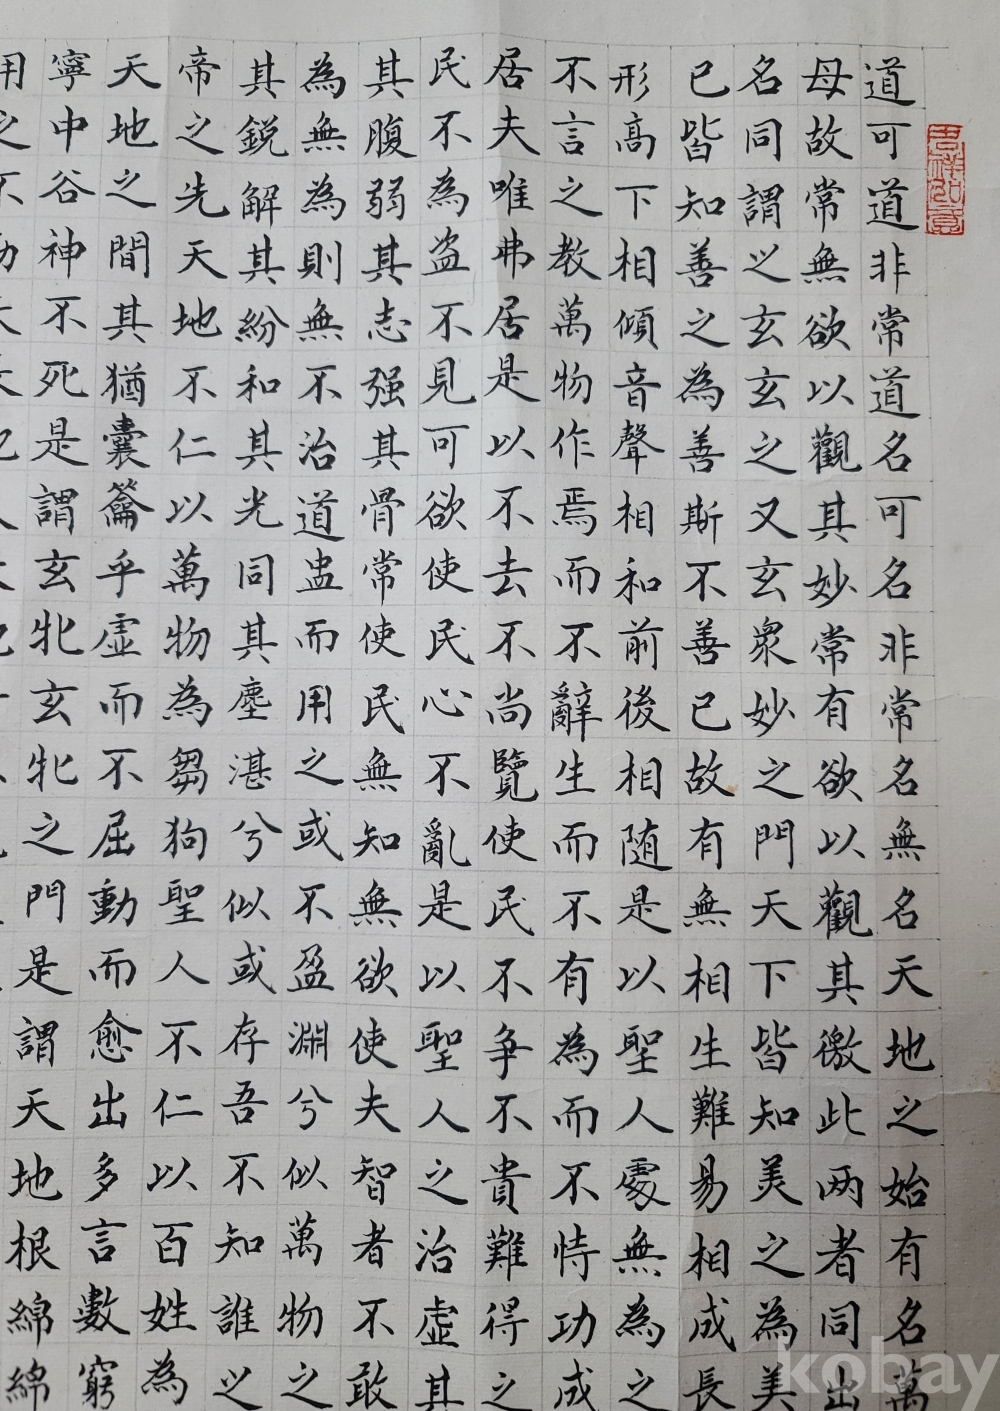 吉祥如意
道可道非常道名可名非常名無名天地之始有名萬
母故常無欲以觀其妙常有欲以觀其徼此两者同出
名同謂之玄玄之又玄衆妙之門天下皆知美之為美
已皆知善之為善斯不善已故有無相生難易相成長
形高下相傾音聲相和前後相随是以聖人處無為之
不言之教萬物作焉而不辭生而不有為而不恃功成
居夫唯弗居是以不去不尚覽使民不争不貴難得之
民不為盗不見可欲使民心不亂是以聖人之治虛其
其腹弱其志强其骨常使民無知無欲使夫智者不敢
為無為則無不治道盅而用之或不盈淵兮似萬物之
其鋭解其紛和其光同其塵湛兮似或存吾不知誰之
帝之先天地不仁以萬物為芻狗聖人不仁以百姓為
天地之間其猶囊籥乎虛而不屈動而愈出多言數窮
寧中谷神不死是謂玄牝玄牝之門是謂天地根綿綿
用之不
kobay